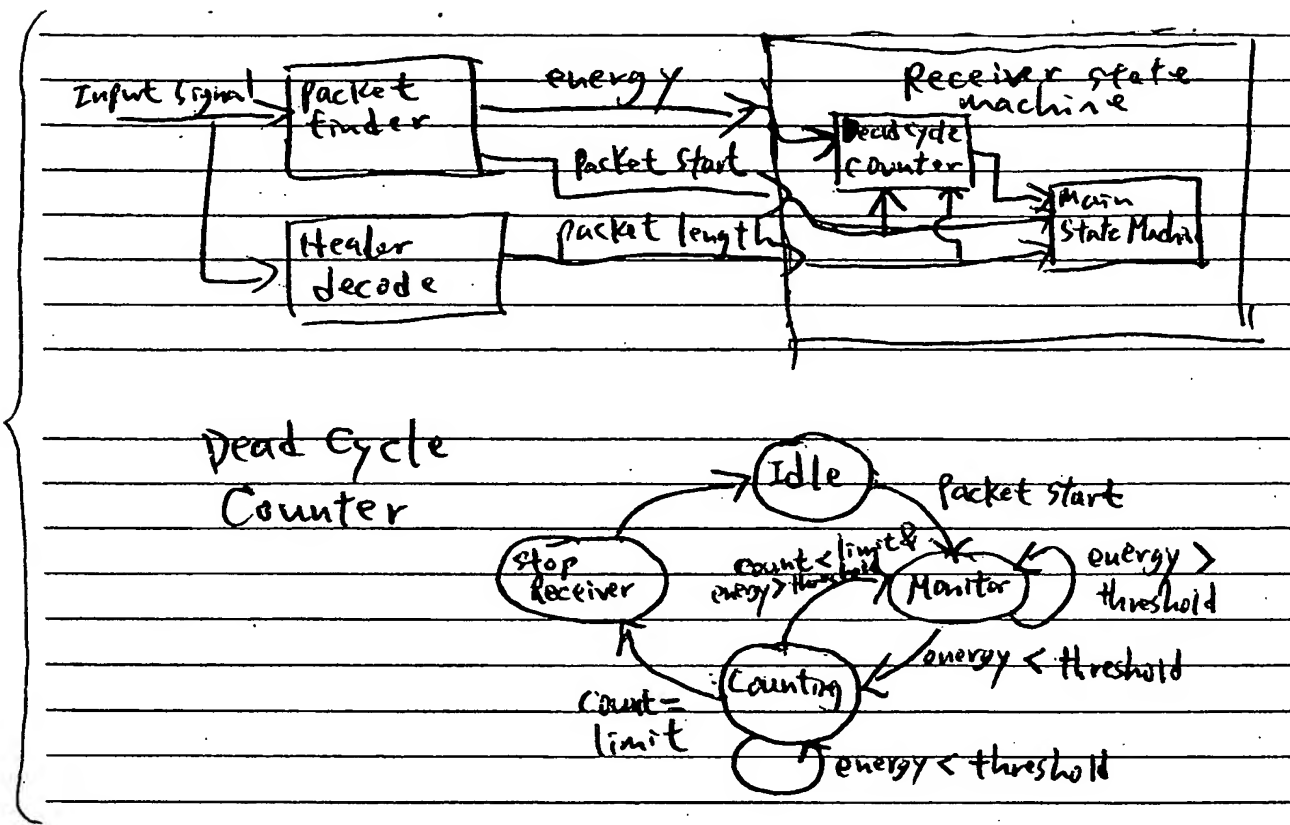 Input Signal
Packet
finder
energy
Packet Start
Header
decode
packet length
Receiver state
machine
Dead cycle
counter
Main
State Machin
Dead Cycle
Counter
Idle
Packet start
Stop
Receiver
count < limit &
energy > threshold
Monitor
energy >
threshold
energy < threshold
Counting
Count =
limit
energy < threshold